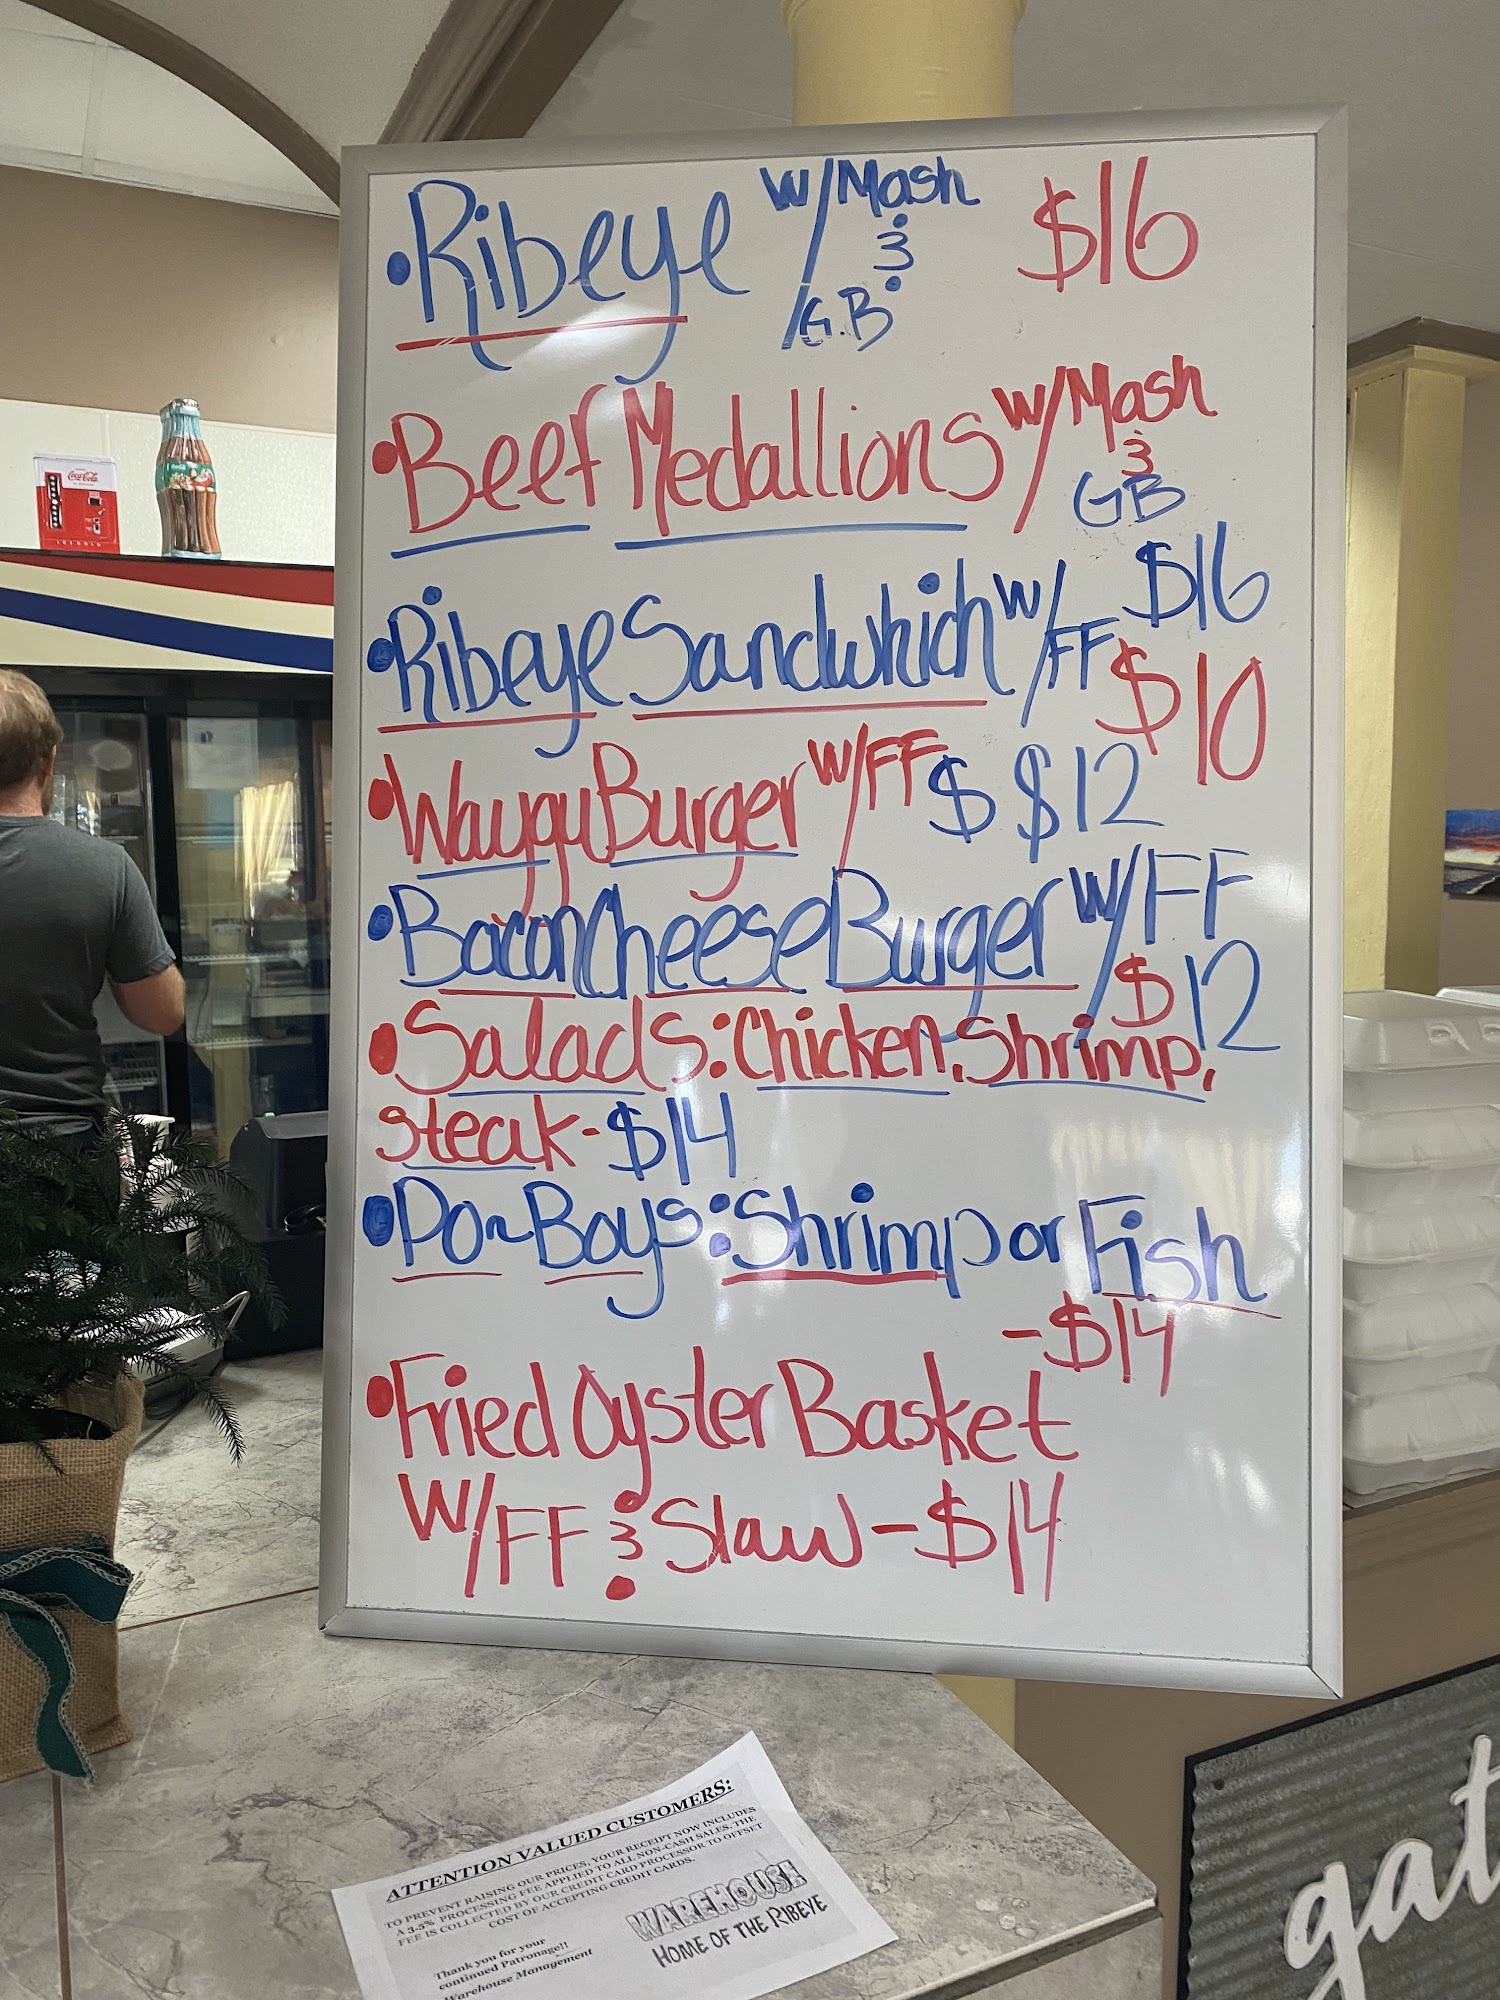 •Ribeye w/Mash & /G.B $16
•Beef Medallions w/Mash & GB
$16
•Ribeye Sandwhich w/FF $10
•Waygu Burger w/FF $ $12
•Bacon Cheese Burger w/FF
$12
•Salads: Chicken, Shrimp,
steak - $14
•Po-Boys: Shrimp or Fish
- $14
•Fried Oyster Basket
w/FF & Slaw - $14
Coca-Cola
ATTENTION VALUED CUSTOMERS:
TO PREVENT RAISING OUR PRICES, YOUR RECEIPT NOW INCLUDES
A 3-5% PROCESSING FEE APPLIED TO ALL NON-CASH SALES. THE
FEE IS COLLECTED BY OUR CREDIT CARD PROCESSOR TO OFFSET
COST OF ACCEPTING CREDIT CARDS.
Thank you for your
continued Patronage!!
Warehouse Management
WAREHOUSE
HOME OF THE RIBEYE
gat